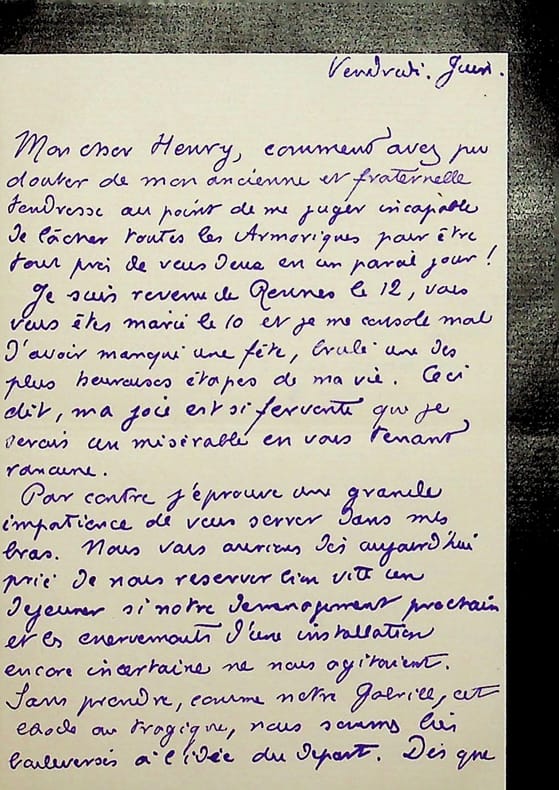 Vendredi. Juin.
Mon cher Henry, comment avez pu
douter de mon ancienne et fraternelle
tendresse au point de me juger incapable
de lâcher toutes les Armoriques pour être
tout près de vous deux en un pareil jour !
Je suis revenu de Rennes le 12, vous
vous êtes marié le 10 et je me console mal
d'avoir manqué une fête, brulé une des
plus heureuses étapes de ma vie. Ceci
dit, ma joie est si fervente que je
serais un misérable en vous tenant
rancune.
Par contre j'éprouve une grande
impatience de vous serrer dans mes
bras. Nous vous aurions dès aujourd'hui
prié de nous reserver bien vite un
dejeuner si notre demenagement prochain
et les enervements d'une installation
encore incertaine ne nous agitaient.
Sans prendre, comme notre Gabrielle, cet
exode au tragique, nous sommes très
bouleversés à l'idée du départ. Dès que